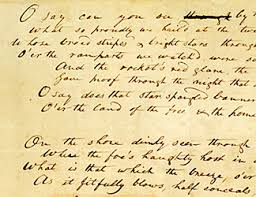 O say can you see through by th
what so proudly we hail'd at the tw
Whose broad stripes & bright stars through
O'er the ramparts we watch'd were so
And the rocket's red glare, the
Gave proof through the night that
O say does that star spangled banner
O'er the land of the free & the home
On the shore dimly seen through
Where the foe's haughty host in
What is that which the breeze, o'er
As it fitfully blows, half conceals